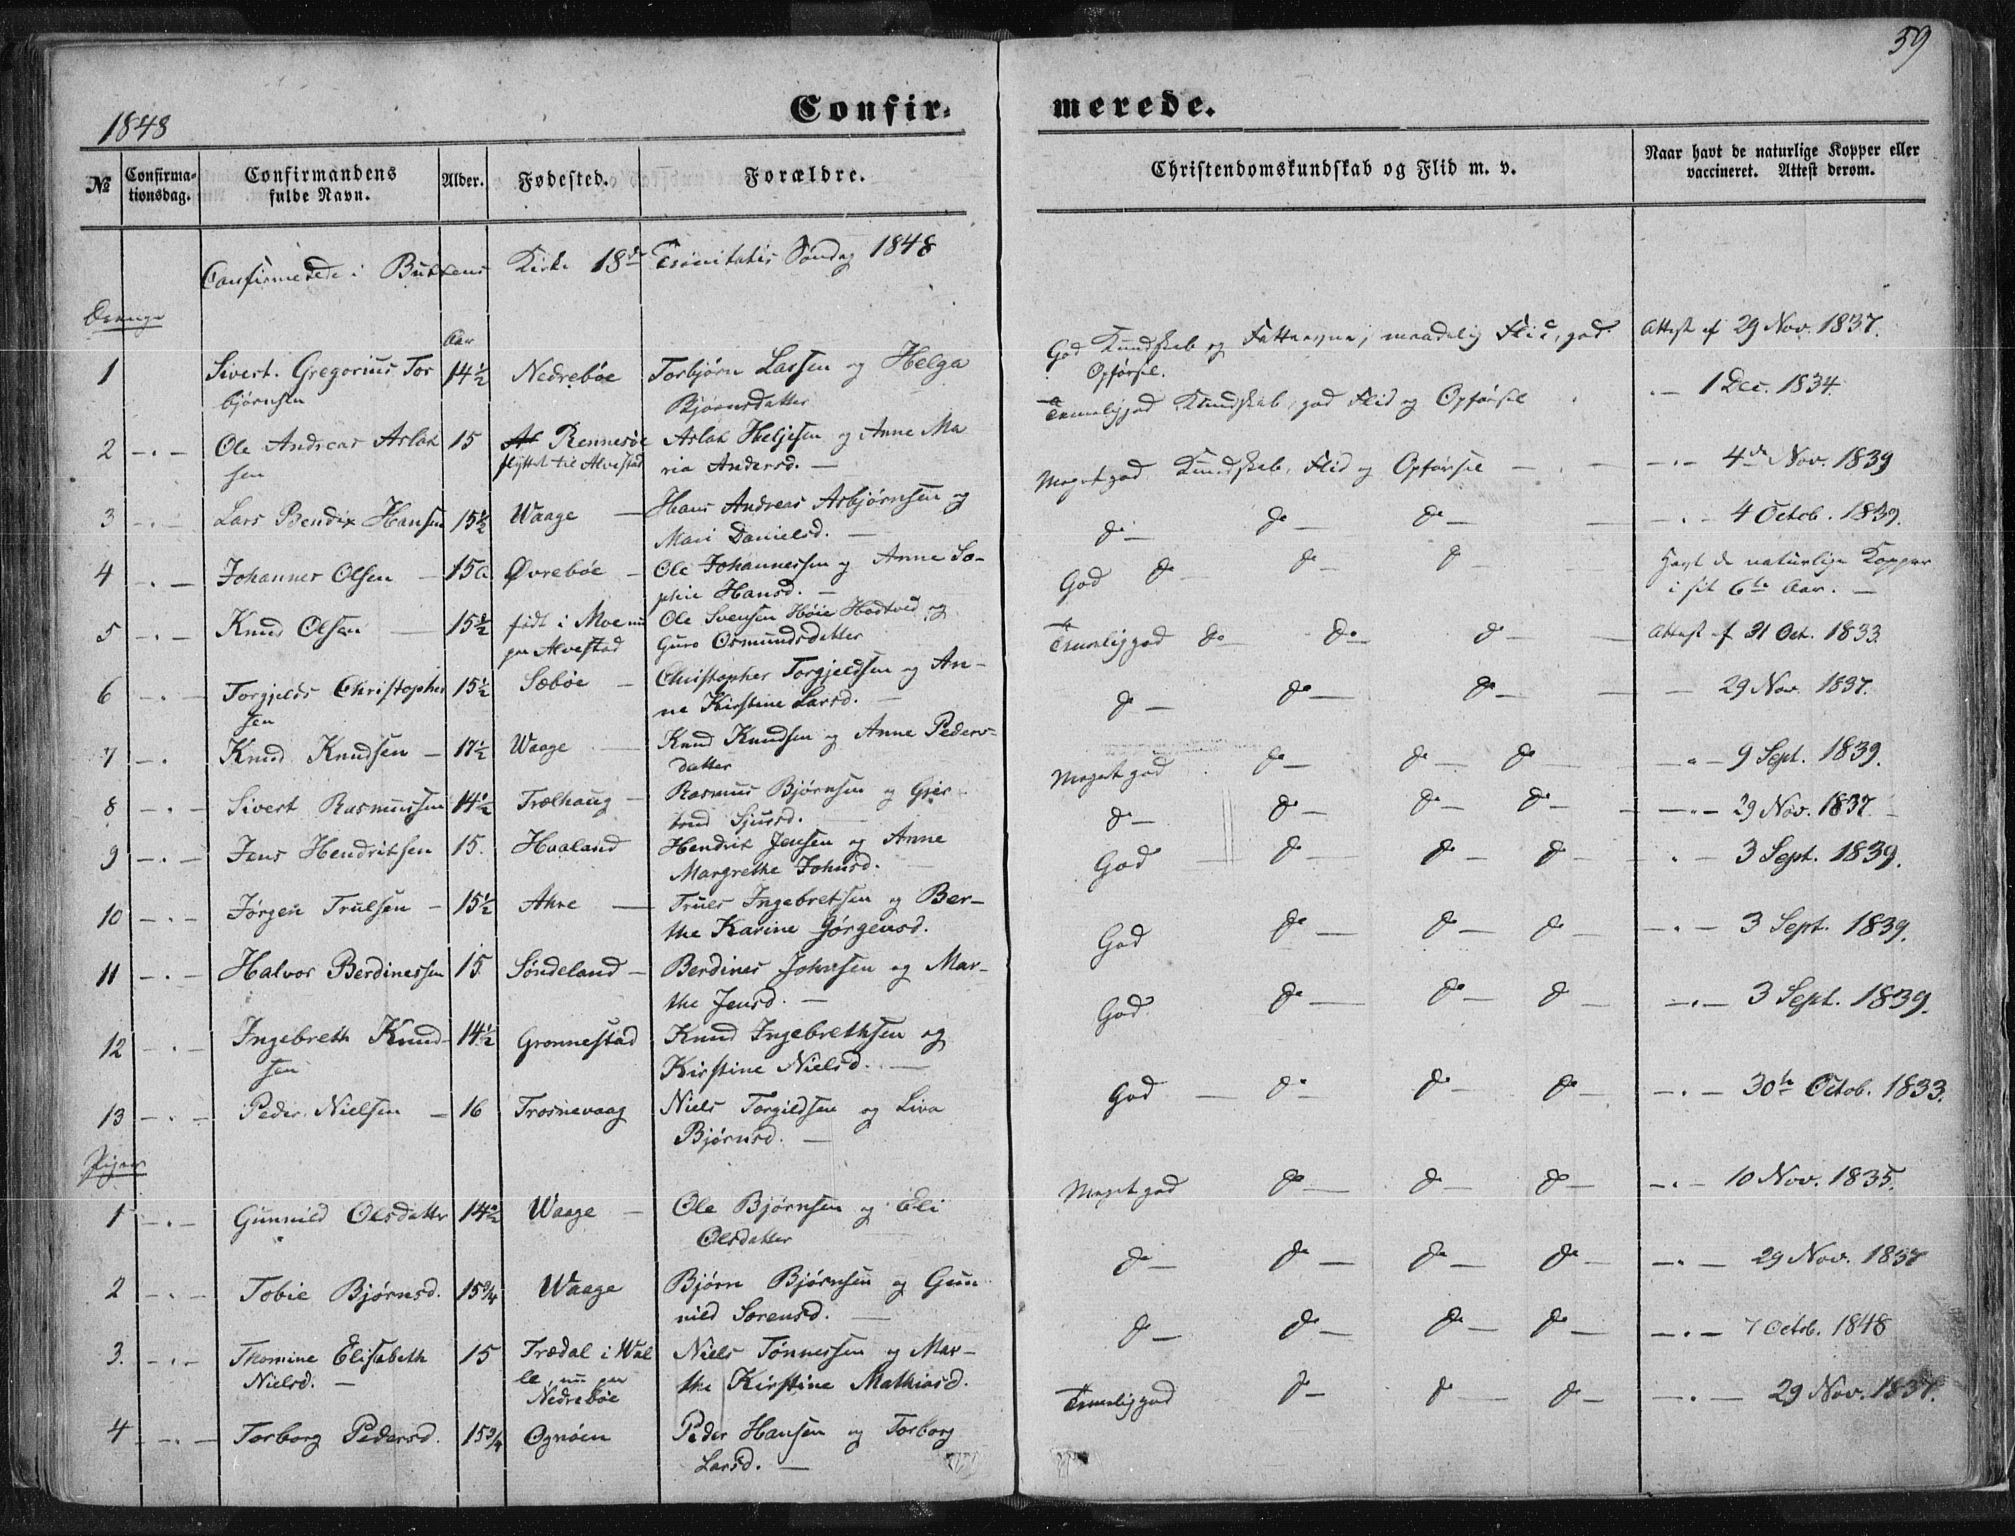 59
1848
Confir-
merede.
№
Confirma-
tionsdag.
Confirmandens
fulde Navn.
Alder.
Fødested.
Forældre.
Christendomskundskab og Flid m. v.
Naar havt de naturlige Kopper eller
vaccineret. Attest derom.
Confirmerede i Bukkens Kirke 18de Trinitatis Søndag 1848
Drenge
Aar
1 Sivert Gregorius Tor 14½ Nedrebøe Torbjørn Lassen og Helga God Kundskab og Fatteevne, maadelig Flid, god Attest af 29 Nov. 1837.
bjørnsen Bjørnsdatter Opførsel.
2 -"- Ole Andreas Aslak 15 Rennesøe Aslak Heljesen og Anne Ma Temmelig god Kundskab, god Flid og Opførsel -"- 1 Dec. 1834.
sen flyttet til Alvestad ria Andersd. —
3 -"- Lars Bendix Hansen 15½ Waage — Hans Andreas Asbjørnsen og Meget god Kundskab, Flid og Opførsel -"- 4de Nov. 1839
Mari Danielsd. —
4 -"- Johannes Olsen — 15 Øvrebøe — Ole Johannessen og Anne So- do — do — do — -"- 4 Octob. 1839.
phie Hansd. —
5 -"- Knud Olsen — 15½ født i Moe nu Ole Svensen Høie Hodtved og God do — do — do Havt de naturlige Kopper
paa Alvestad Guro Osmundsdatter i sit 6te Aar. —
6 -"- Torgjelds Christopher 15½ Sæbøe — Christopher Torgjeldsen og An- Temmelig god do — do — do — Attest af 31 Oct. 1833.
sen ne Kirstine Larsd. —
7 -"- Knud Knudsen — 17½ Waage — Knud Knudsen og Anne Peders- do — do — do — — 29 Nov. 1837.
datter
8 -"- Sivert Rasmussen 14½ Trælhaug — Rasmus Bjørnsen og Gjer- Meget god do — do — do — -"- 9 Sept. 1839.
trud Sjursd. —
9 -"- Jens Hendriksen 15. Hvaland Hendrik Jensen og Anne do — do — do — do — -"- 29 Nov. 1837.
Margrethe Johnsd. —
10 -"- Jørgen Trulsen — 15½ Ahre — Truls Ingebretsen og Ber- God do — do — do — -"- 3 Sept. 1839.
the Karine Jørgensd.
11 -"- Halvor Berdinessen 15. Søndeland — Berdines Johnsen og Mar- God do — do — do — -"- 3 Sept. 1839.
the Jensd. —
12 -"- Ingebreth Knud- 14½ Grønnestad Knud Ingebrethsen og God do — do — do — -"- 3 Sept. 1839.
sen Kirstine Nielsd. —
13 -"- Peder Nielsen — 16 Trosnevaag Niels Torgildsen og Liva God — do — do — do — -"- 30te Octob. 1833.
Bjørnsd. —
Piger
1 -"- Gunnild Olsdatter 14½ Waage — Ole Bjørnsen og Eli Meget god do — do — do — -"- 10 Nov. 1835.
Olsdatter
2 -"- Tobie Bjørnsd. 15¾ Waage Bjørn Bjørnsen og Gun- do — do — do — do — -"- 29 Nov. 1837
nild Sørensd. —
3. -"- Thomine Elisabeth 15 Trædal i Wal Niels Tønnessen og Mar- do — do — do — do — -"- 7 Octob. 1848
Nielsd. — le, nu paa the Kirstine Mathiasd.
Nedrebøe
4 -"- Torborg Pedersd. 15¾ Ognøen Peder Hansen og Torborg Temmelig god do — do — do — -"- 29 Nov. 1837.
Larsd. —